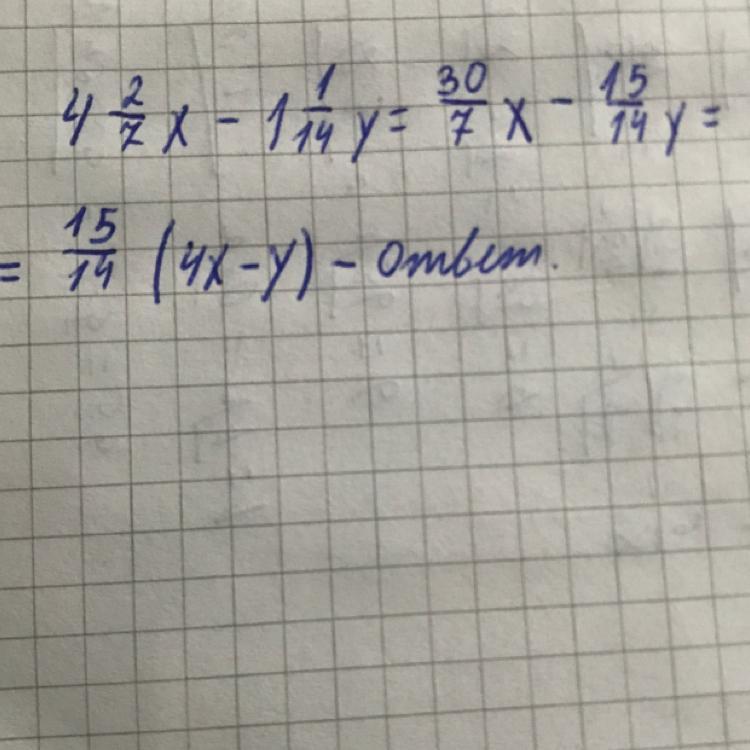 4 2/7 x - 1 1/14 y = 30/7 x - 15/14 y =
= 15/14 (4x - y) - ответ.